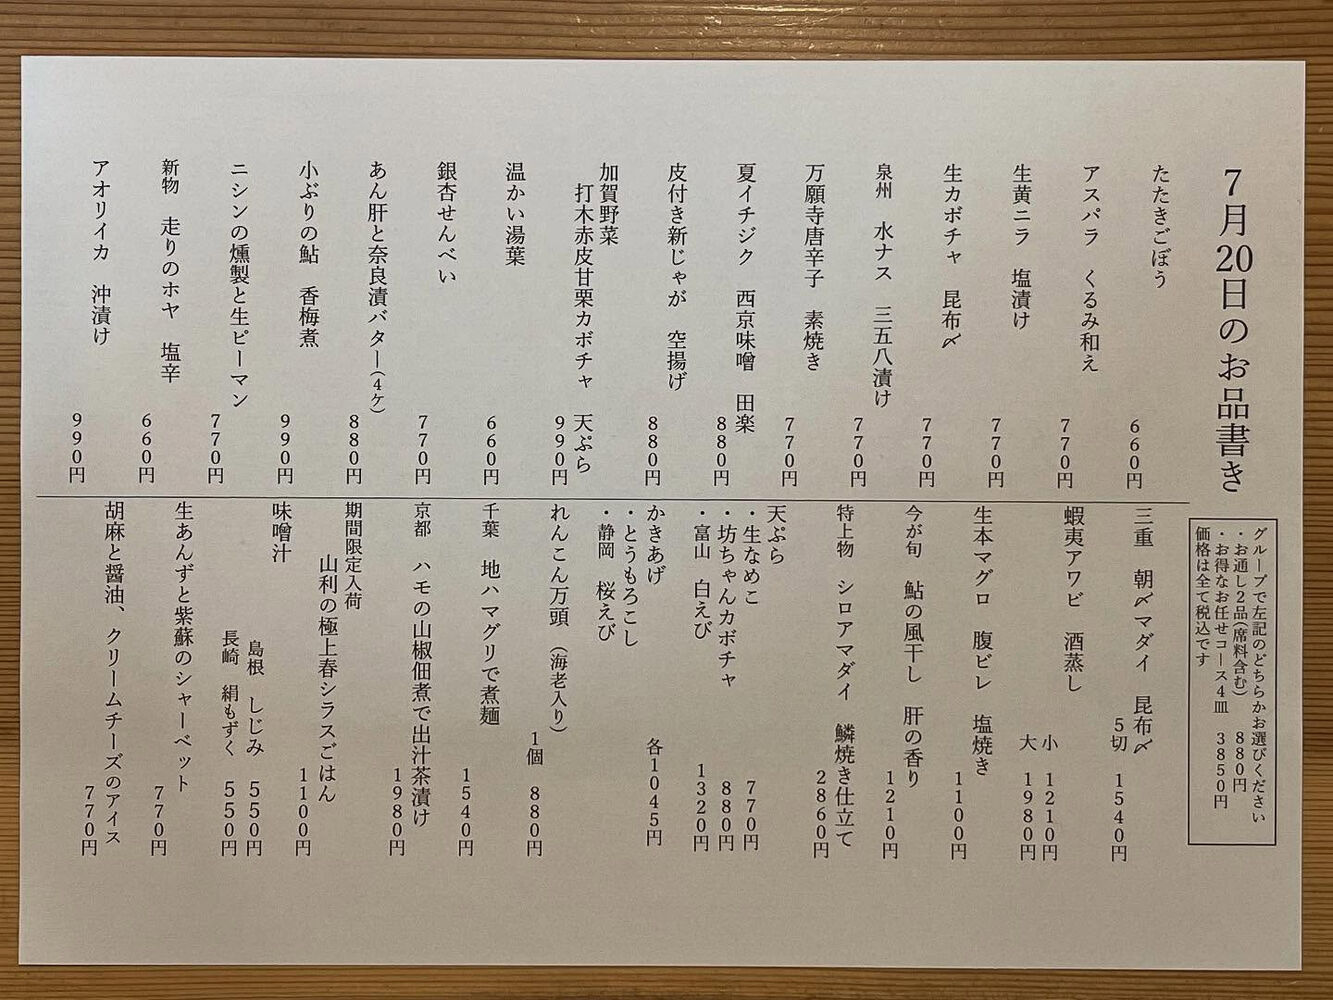 7月20日のお品書き
グループで左記のどちらかお選びください
・お通し2品(席料含む) 880円
・お得なお任せコース4皿 3850円
価格は全て税込です
たたきごぼう
660円
アスパラ くるみ和え
770円
生黄ニラ 塩漬け
770円
生カボチャ 昆布〆
770円
泉州 水ナス 三五八漬け
770円
万願寺唐辛子 素焼き
770円
夏イチジク 西京味噌 田楽
880円
皮付き新じゃが 空揚げ
880円
加賀野菜
打木赤皮甘栗カボチャ 天ぷら
990円
温かい湯葉
660円
銀杏せんべい
770円
あん肝と奈良漬バター(4ケ)
880円
小ぶりの鮎 香梅煮
990円
ニシンの燻製と生ピーマン
770円
新物 走りのホヤ 塩辛
660円
アオリイカ 沖漬け
990円
三重 朝〆マダイ 昆布〆
5切 1540円
蝦夷アワビ 酒蒸し
小 1210円
大 1980円
生本マグロ 腹ビレ 塩焼き
1100円
今が旬 鮎の風干し 肝の香り
1210円
特上物 シロアマダイ 鱗焼き仕立て
2860円
天ぷら
・生なめこ 770円
・坊ちゃんカボチャ 880円
・富山 白えび 1320円
かきあげ 各1045円
・とうもろこし
・静岡 桜えび
れんこん万頭 (海老入り)
1個 880円
千葉 地ハマグリで煮麺
1540円
京都 ハモの山椒佃煮で出汁茶漬け
1980円
期間限定入荷
山利の極上春シラスごはん
1100円
味噌汁
島根 しじみ 550円
長崎 絹もずく 550円
生あんずと紫蘇のシャーベット
770円
胡麻と醤油、クリームチーズのアイス
770円